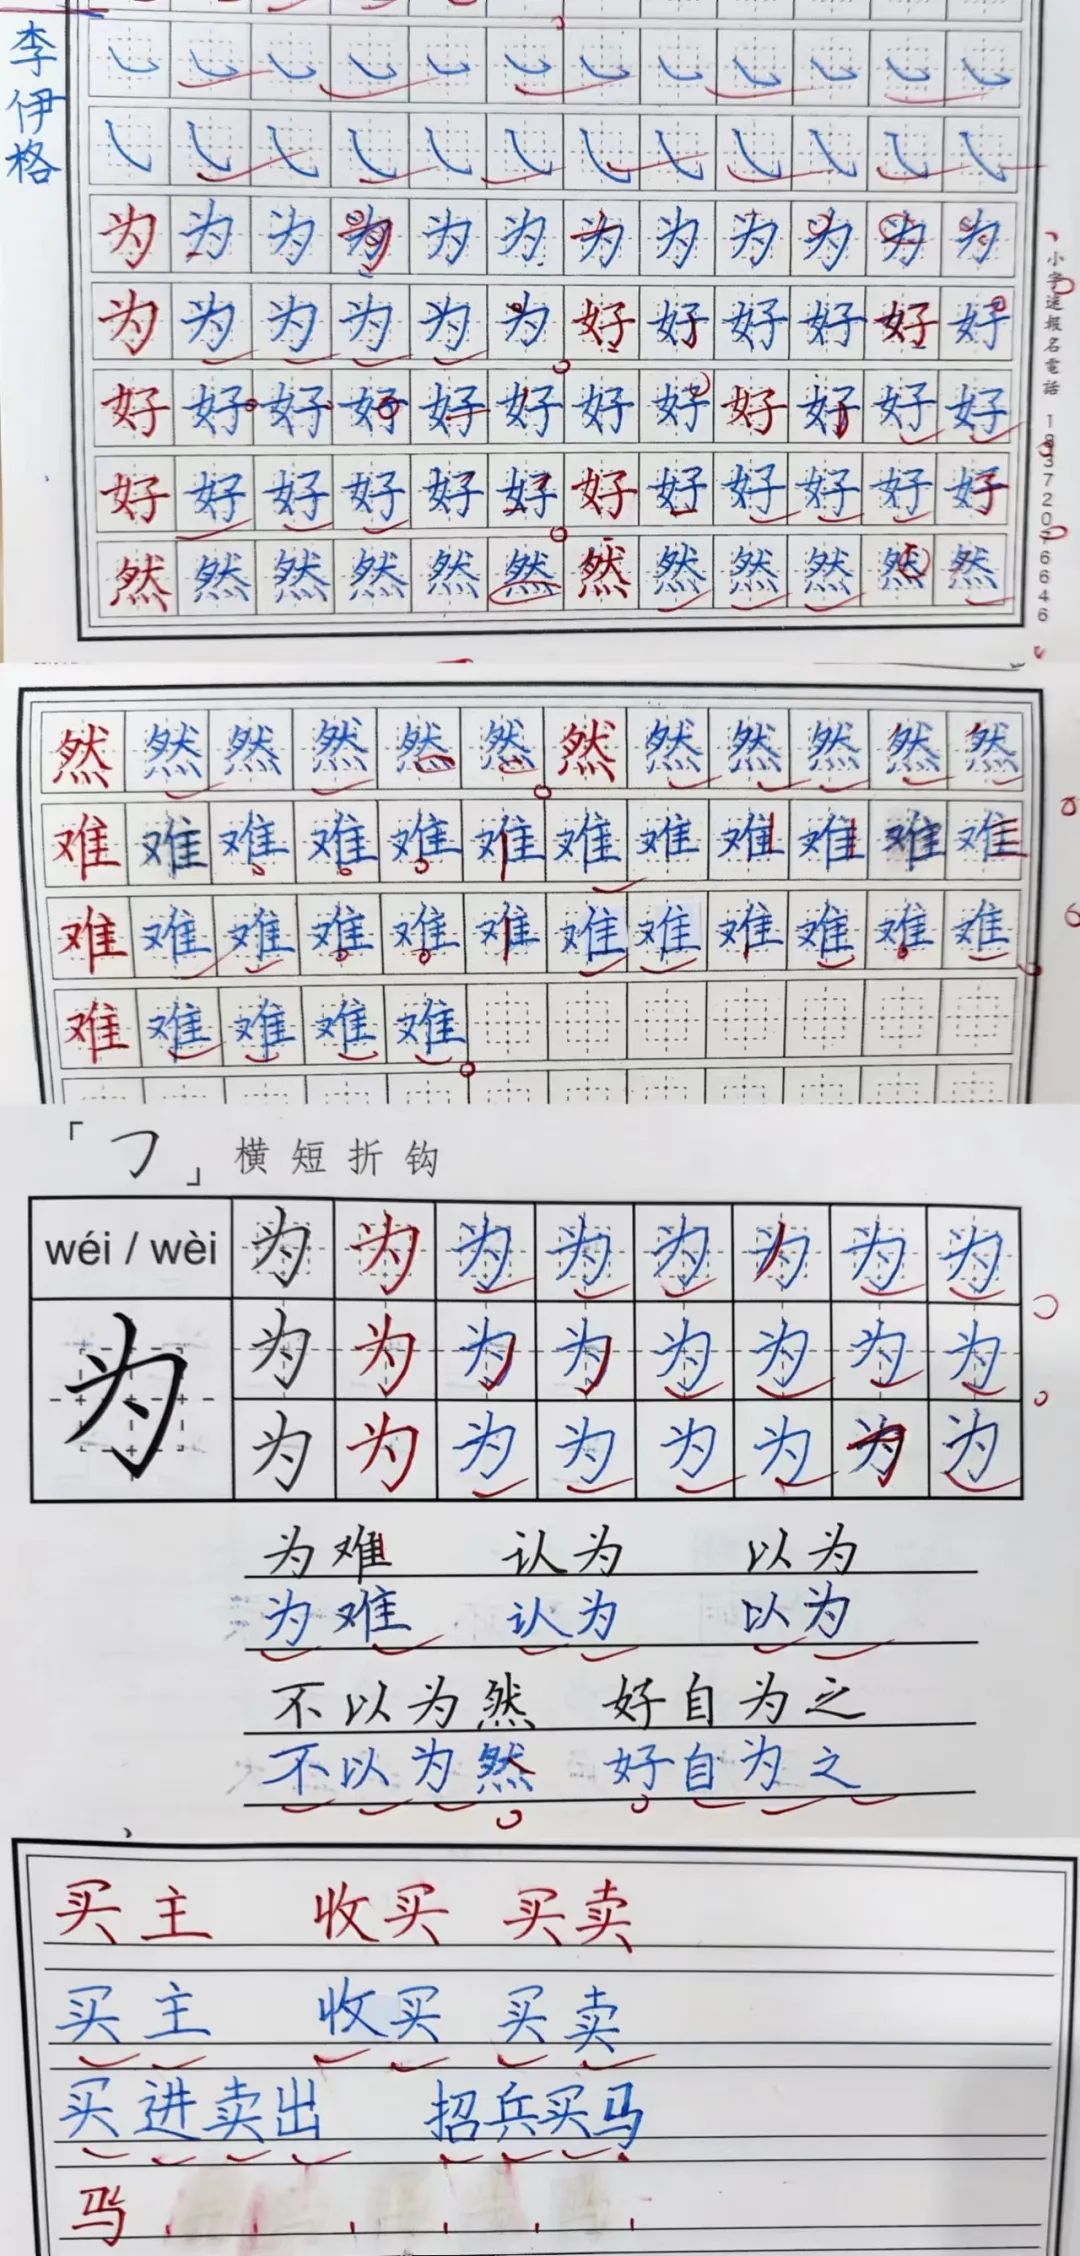 李伊格
为为为为为为为为为为为为
为为为为为为好好好好好好
好好好好好好好好好好好好
好好好好好好好好好好好好
然然然然然然然然然然然然
小字速报名電話 18372076646
然然然然然然然然然然然然
难难难难难难难难难难难难
难难难难难难难难难难难难
难难难难难
「㇆」横短折钩
wéi / wèi 为为为为为为为为
为 为为为为为为为为
为为为为为为为为
为难 认为 以为
为难 认为 以为
不以为然 好自为之
不以为然 好自为之
买主 收买 买卖
买主 收买 买卖
买进卖出 招兵买马
马